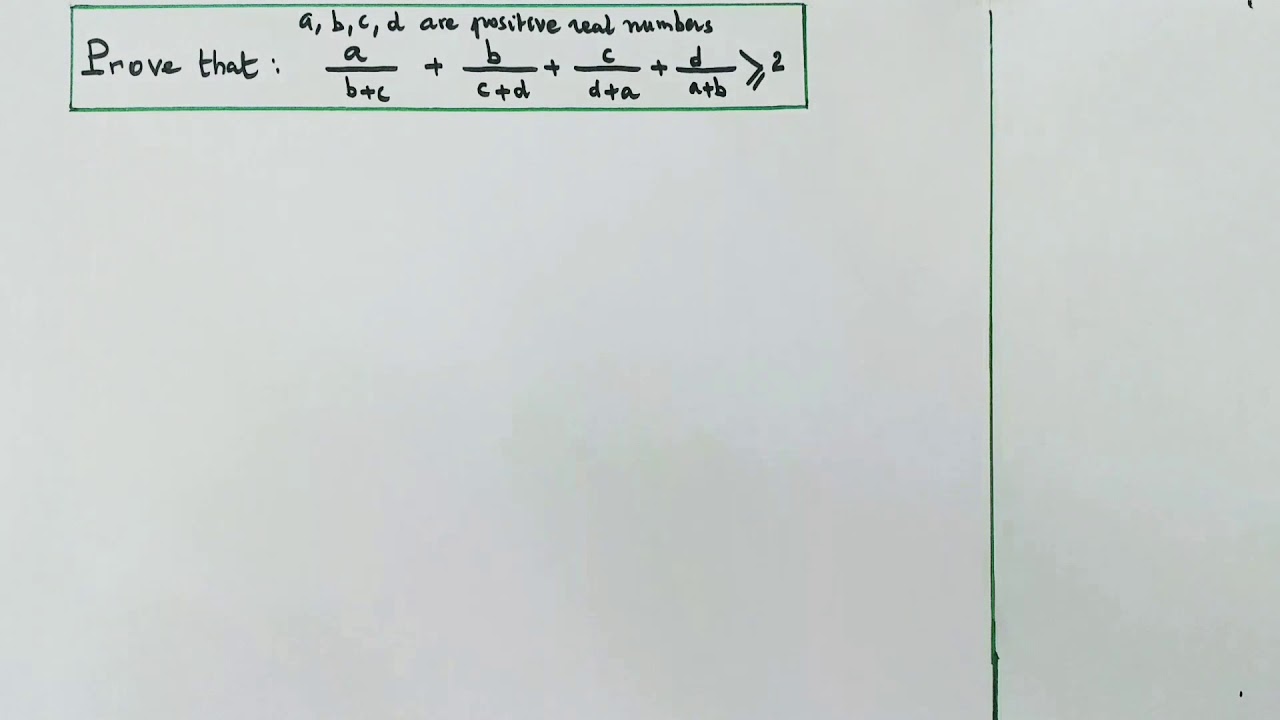 a, b, c, d are positive real numbers
Prove that: a/(b+c) + b/(c+d) + c/(d+a) + d/(a+b) ⩾ 2